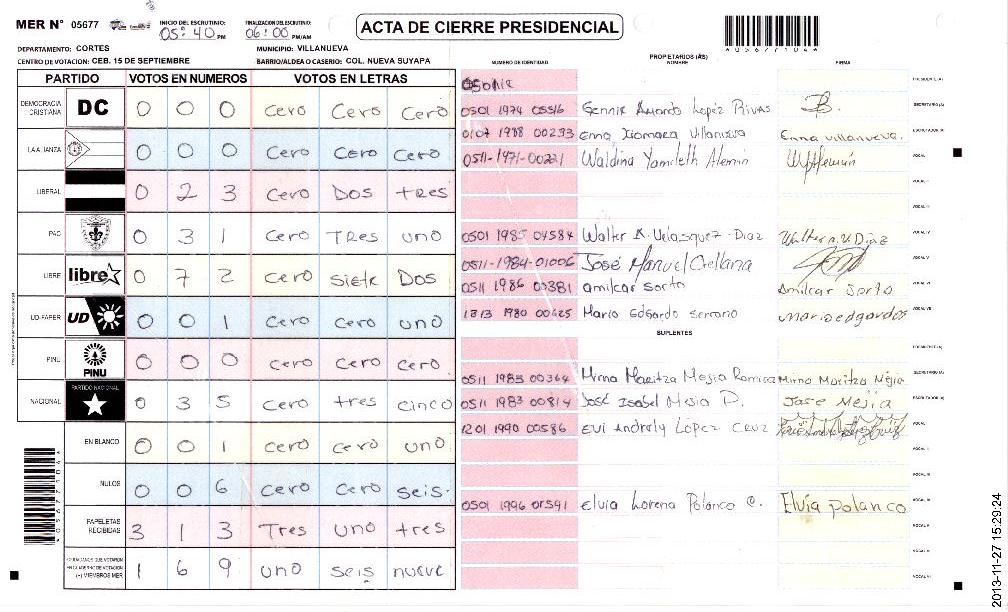 MER N° 05677
INICIO DEL ESCRUTINIO: 05:40 PM
FINALIZACION DEL ESCRUTINIO: 06:00 PM/AM
ACTA DE CIERRE PRESIDENCIAL
DEPARTAMENTO: CORTES
MUNICIPIO: VILLANUEVA
CENTRO DE VOTACION: CEB. 15 DE SEPTIEMBRE
BARRIO/ALDEA O CASERIO: COL. NUEVA SUYAPA
PARTIDO VOTOS EN NUMEROS VOTOS EN LETRAS
DEMOCRACIA CRISTIANA DC 0 0 0 Cero Cero Cero
LA ALIANZA 0 0 0 Cero Cero Cero
LIBERAL 0 2 3 Cero Dos tres
PAC 0 3 1 Cero Tres uno
LIBRE libre 0 7 2 Cero siete Dos
UD-FAPER UD 0 0 1 Cero Cero uno
PINU PINU 0 0 0 Cero Cero Cero
NACIONAL PARTIDO NACIONAL 0 3 5 Cero tres cinco
EN BLANCO 0 0 1 Cero Cero uno
NULOS 0 0 6 Cero Cero seis.
PAPELETAS RECIBIDAS 3 1 3 Tres uno tres
CIUDADANOS QUE VOTARON EN CUADERNO DE VOTACION (+) MIEMBROS MER 1 6 9 uno seis nueve
NUMERO DE IDENTIDAD
PROPIETARIOS (AS)
NOMBRE
FIRMA
PRESIDENTE(A)
0501 1974 05516 Lopez Rivas SECRETARIO(A)
0107 1988 00293 Enna Xiomara Villanueva Enna villanueva. ESCRUTADOR(A)
0511-1971-00221 Waldina Yamileth Aleman VOCAL
0501 1985 04584 Walter A. Velasquez Diaz Walter A. V. Diaz
0511-1984-01006 José Manuel Orellana
0511 1986 00381 amilcar sorto Amilcar Sorto
1313 1980 00625 Mario Edgardo serrano Marioedgardos
SUPLENTES
0511 1983 00364 Mirna Maritza Mejia Mirna Maritza Mejia SECRETARIO(A)
0511 1983 00814 José Isabel Mejia D. Jose Mejia ESCRUTADOR(A)
1201 1990 00586 Evi Lopez Cruz VOCAL
0501 1996 01591 Elvia Lorena Polanco C. Elvia polanco
2013-11-27 15:29:24